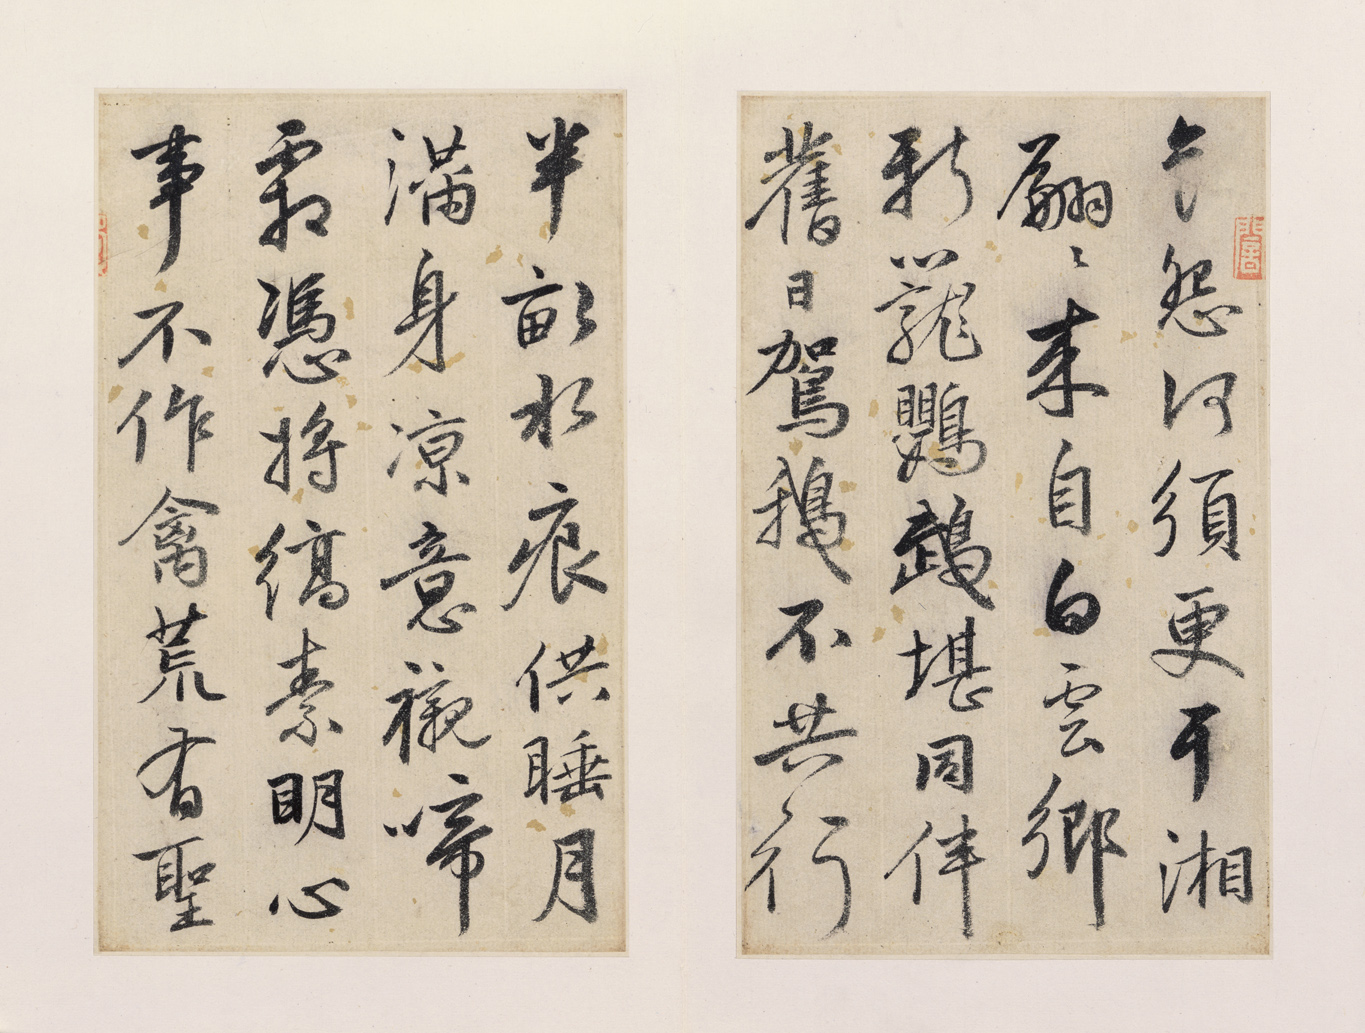 怨何須更干湘
翩〻來自白雲鄉
新籠鸚鵡堪同伴
舊日駕鵝不共行
半畝水痕供睡月
滿身涼意襯啼
霜憑將縞素明心
事不作禽荒有聖